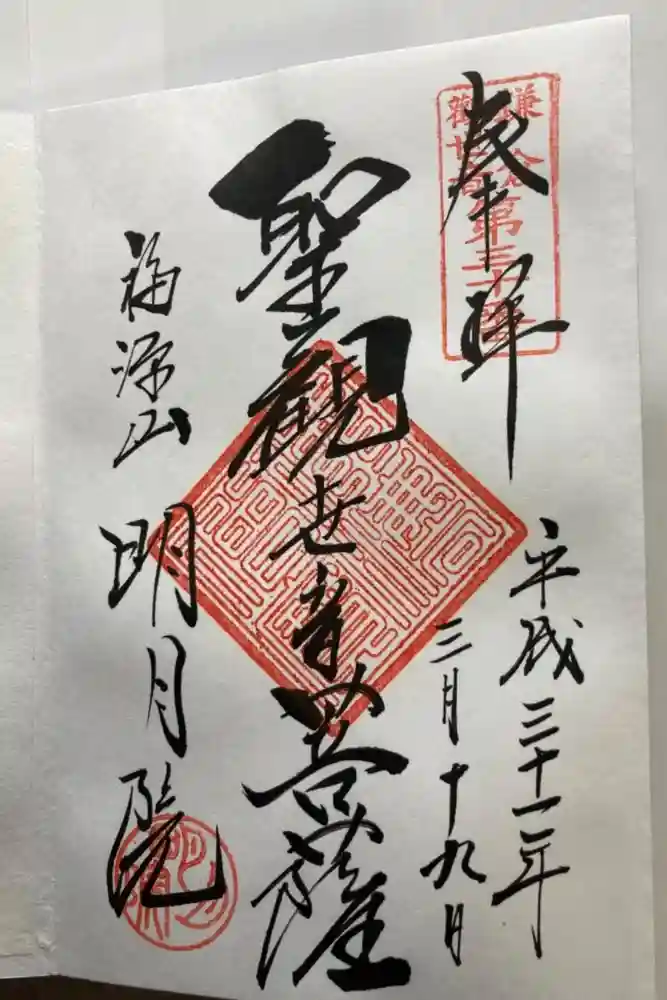 奉拝
鎌倉観世音第三十番
平成三十一年
三月十九日
聖観世音菩薩
福源山
明月院